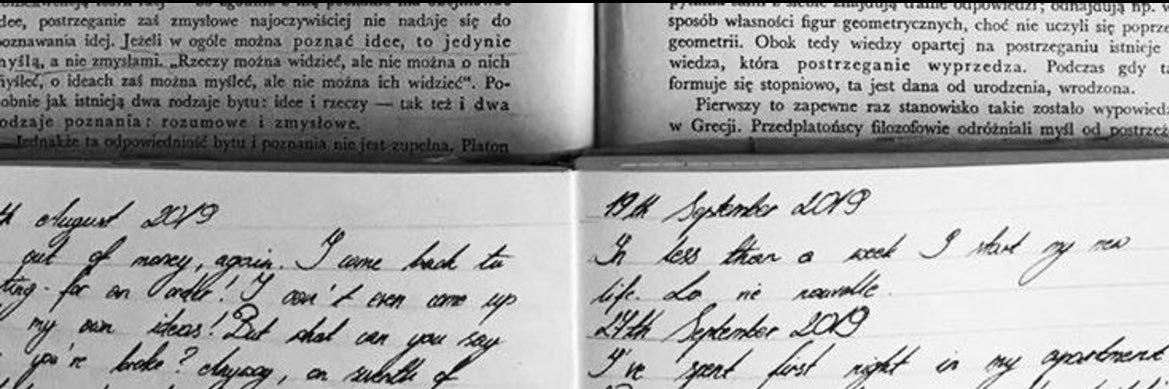 idee, postrzeganie zaś zmysłowe najoczywiściej nie nadaje się do
poznawania idej. Jeżeli w ogóle można poznać idee, to jedynie
myślą, a nie zmysłami. „Rzeczy można widzieć, ale nie można o nich
myśleć, o ideach zaś można myśleć, ale nie można ich widzieć“. Po-
obnie jak istnieją dwa rodzaje bytu: idee i rzeczy — tak też i dwa
odzaje poznania: rozumowe i zmysłowe.
Jednakże ta odpowiedniość bytu i poznania nie jest zupełna. Platon
sposób własności figur geometrycznych, choć nie uczyli się poprze
geometrii. Obok tedy wiedzy opartej na postrzeganiu istnieje
wiedza, która postrzeganie wyprzedza. Podczas gdy ta
formuje się stopniowo, ta jest dana od urodzenia, wrodzona.
Pierwszy to zapewne raz stanowisko takie zostało wypowiedz
w Grecji. Przedplatońscy filozofowie odróżniali myśl od postrzeż
th August 2019
out of money, again. I came back to
ting for an order! I can't even come up
my own ideas! But what can you say
you're broke? Anyway, on seventh of
19th September 2019
In less than a week I start my new
life. La vie nouvelle.
27th September 2019
I've spent first night in my apartment